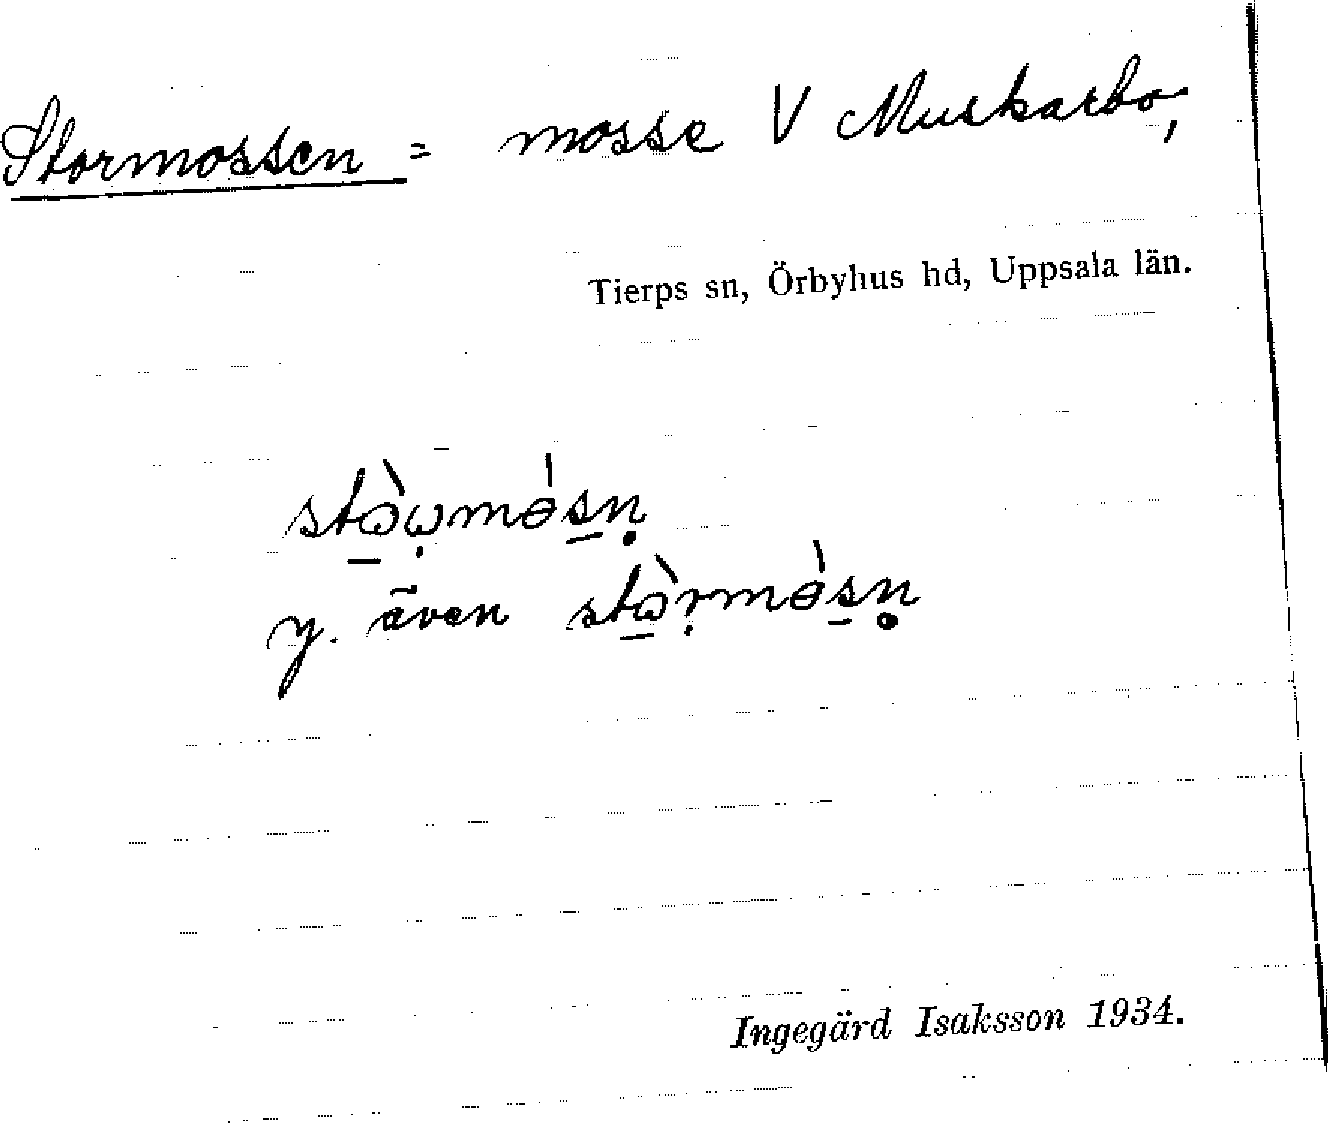 Stormossen = mosse V Munkarbo,
Tierps sn, Örbyhus hd, Uppsala län.
y. även
Ingegärd Isaksson 1934.